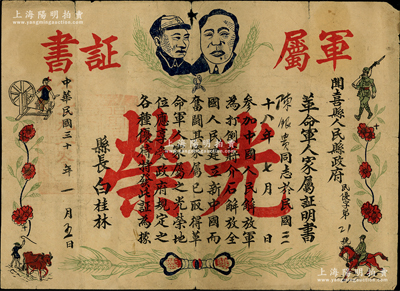 上海陽明拍賣
軍屬証書
光榮
聞喜縣人民縣政府
民優字第21號
革命軍人家屬証明書
陳 貴同志於民國三
十八年七月 日
參加中國人民解放軍
為打倒蔣介石解放全
國人民建立新中國而
奮鬪其家屬已取得革
命軍人家屬之光榮地
位應享受政府規定之
各種優待特發此証為據
縣長白桂林
中華民國三十 年一月五日